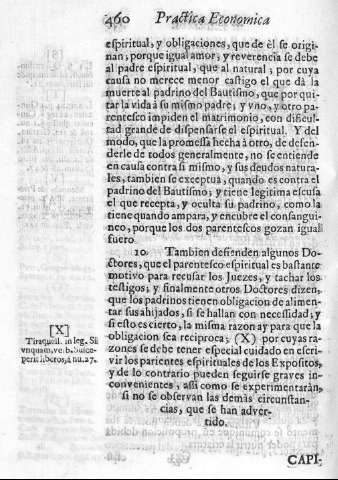 460 Practica Economica
espiritual, y obligaciones, que de èl se origi-
nan; porque igual amor; y reverencia se debe
al padre espiritual, que al natural, por cuya
causa no merece menor castigo el que dà la
muerte al padrino del Bautismo, que por qui-
tar la vida à su mismo padre; y vno, y otro pa-
rentesco impiden el matrimonio, con dificul-
tad grande de dispensarse el espiritual. Y del
modo, que la promessa hecha à otro, de defen-
derle de todos generalmente, no se entiende
en causa contra sì mismo, y sus deudos natura-
les, tambien se exceptua, quando es contra el
padrino del Bautismo; y tiene legitima escusa
el que recepta, y oculta su padrino, como la
tiene quando ampara, y encubre el consangui-
neo, porque los dos parentescos gozan igual
fuero.
10. Tambien defienden algunos Do-
ctores, que el parentesco espiritual es bastante
motivo para recusar los Juezes, y tachar los
testigos; y finalmente otros Doctores dizen,
que los padrinos tienen obligacion de alimen-
tar sus ahijados, si se hallan con necessidad; y
si esto es cierto, la misma razon ay para que la
obligacion sea reciproca; (X) por cuyas ra-
zones se debe tener especial cuidado en escri-
vir los parientes espirituales de los Expositos,
y de lo contrario pueden seguirse graves in-
convenientes, assi como se experimentaràn,
si no se observan las demàs circunstan-
cias, que se han adver-
tido.
[X]
Tiraquell. in leg. Si
vnquam, ve. b. Susce-
perit liberos, à nu. 27.
CAPI-